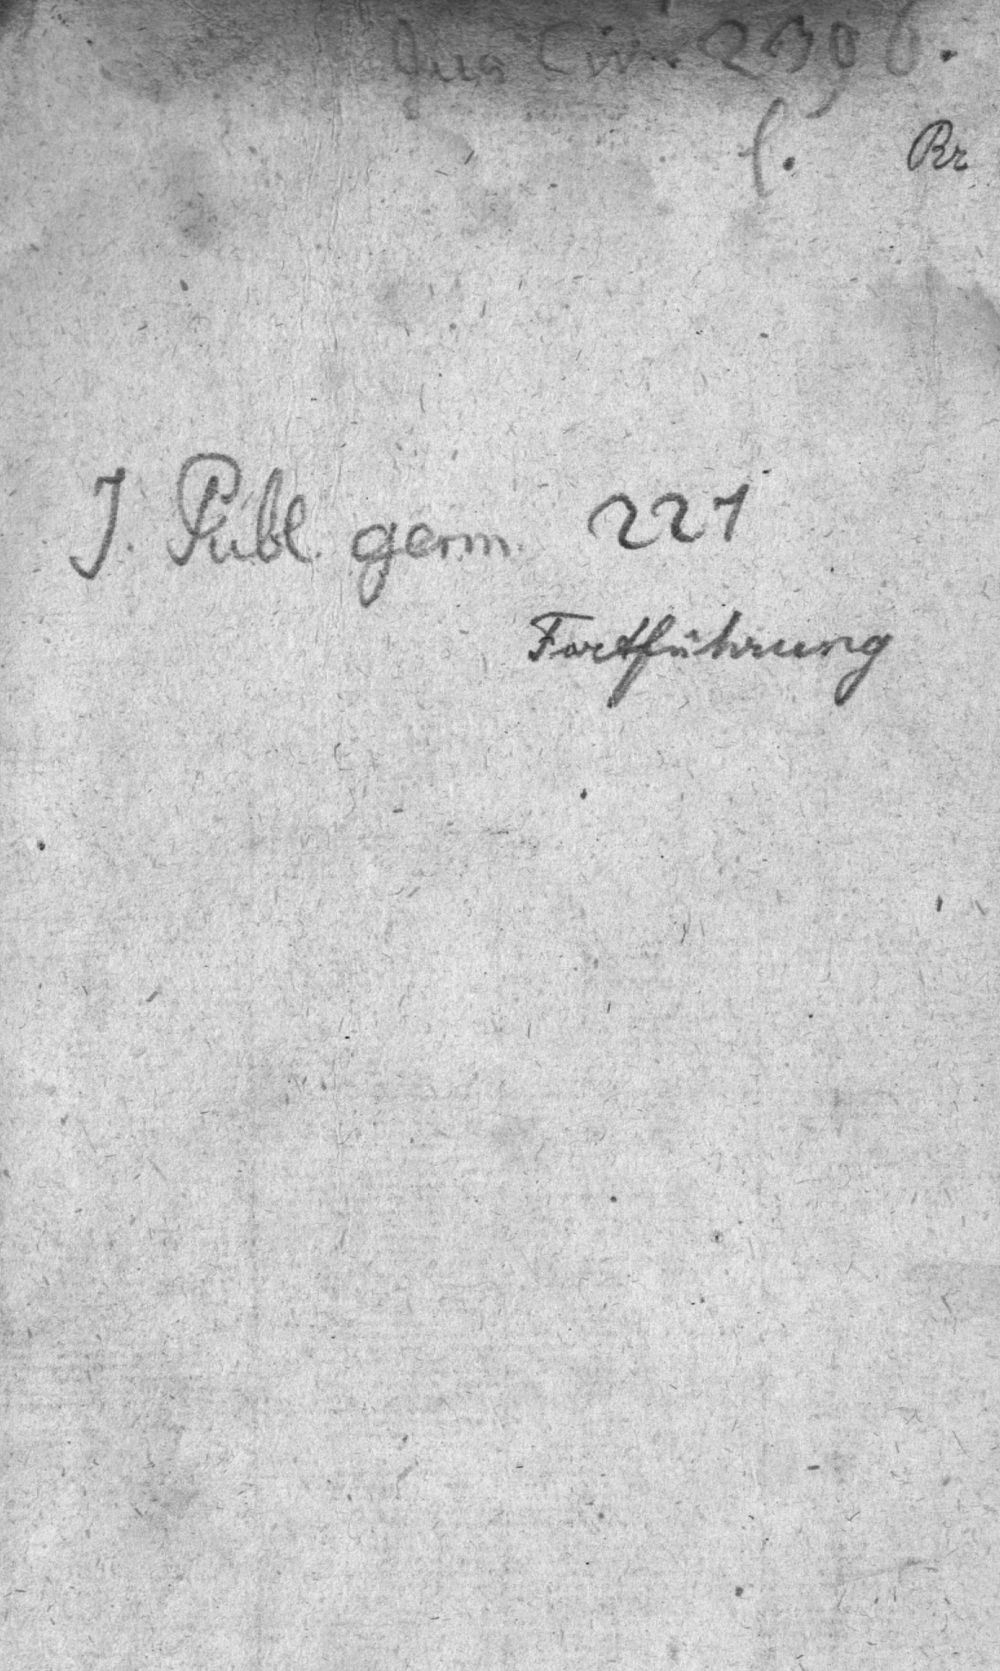 Jus Civ. 2396.
f.
Rr
J. Publ. germ. 221
Fortführung